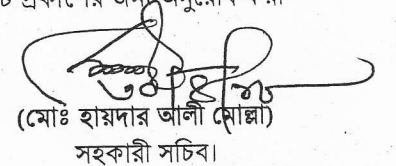 প্রকাশের জন্য অনুরোধ করা
(মোঃ হায়দার আলী মোল্লা)
সহকারী সচিব।